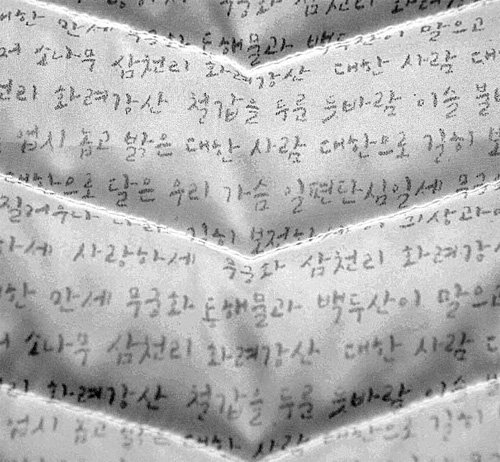 삼천리
대한 만세 무궁화 동해물과 백두산이 말으고
소나무 삼천리 화려강산 대한 사람 대
천리 화려강산 철갑을 두를 듯바람 이슬 불
없시 놉고 밝은 대한 사람 대한으로 길히 보
대한으로 달은 우리 가슴 일편단심일세 무
길히 보전하
하세 사랑하세 무궁화 삼천리 화려강
한 만세 무궁화 동해물과 백두산이 말으
소나무 삼천리 화려강산 대한 사람 대
리 화려강산 철갑을 두를 듯바람 이슬
없시 놉고 밝은 대한 사람 대한으로 길히